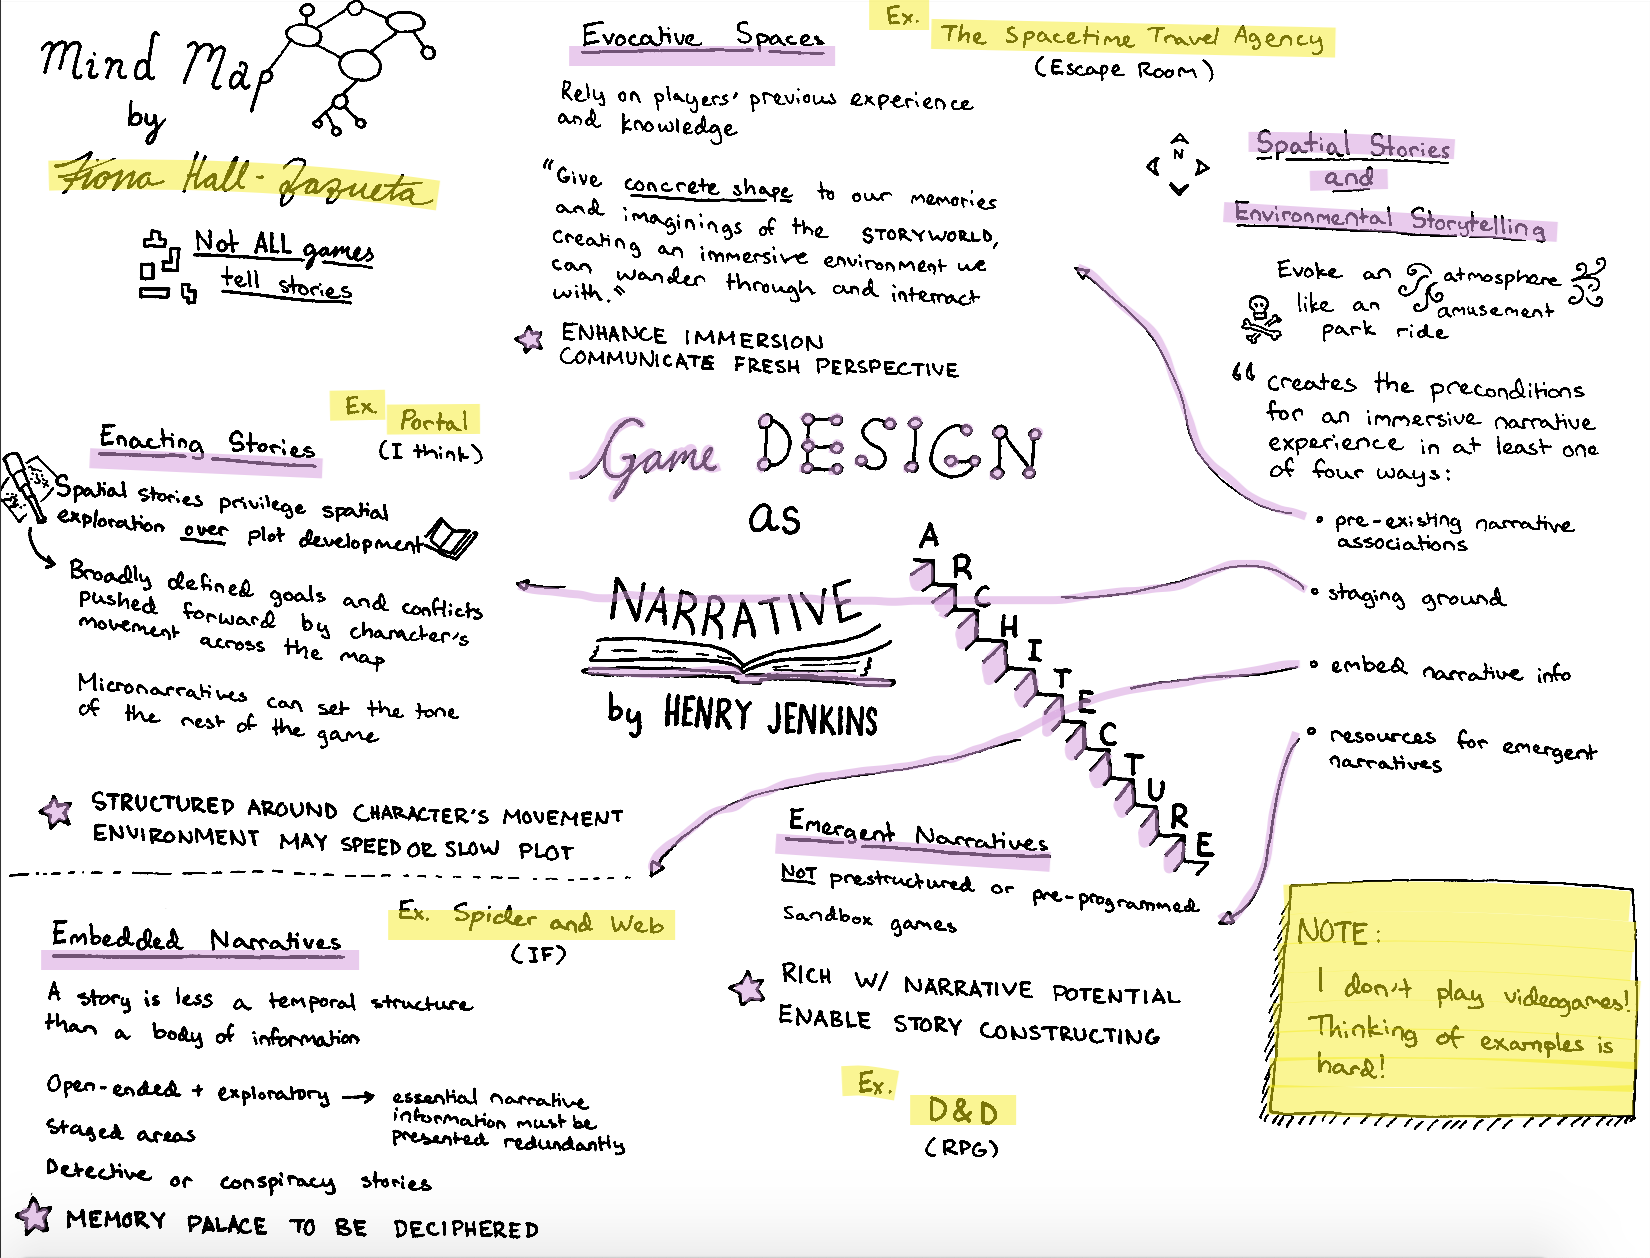 Mind Map
by
Fiona Hall-Zazueta
Not ALL games
tell stories
Evocative Spaces
Ex.
The Spacetime Travel Agency
(Escape Room)
Rely on players' previous experience
and knowledge
"Give concrete shape to our memories
and imaginings of the STORYWORLD,
creating an immersive environment we
can wander through and interract
with."
ENHANCE IMMERSION
COMMUNICATE FRESH PERSPECTIVE
N
Spatial Stories
and
Environmental Storytelling
Evoke an atmosphere
like an amusement
park ride
"creates the preconditions
for an immersive narrative
experience in at least one
of four ways:
• pre-existing narrative
associations
• staging ground
• embed narrative info
• resources for emergent
narratives
Game DESIGN
as
NARRATIVE
ARCHITECTURE
by HENRY JENKINS
Enacting Stories
Ex.
Portal
(I think)
Spatial stories privilege spatial
exploration over plot development
Broadly defined goals and conflicts
pushed forward by character's
movement across the map
Micronarratives can set the tone
of the rest of the game
STRUCTURED AROUND CHARACTER'S MOVEMENT
ENVIRONMENT MAY SPEED OR SLOW PLOT
Embedded Narratives
Ex. Spider and Web
(IF)
A story is less a temporal structure
than a body of information
Open-ended + exploratory → essential narrative
information must be
presented redundantly
Staged areas
Detective or conspiracy stories
MEMORY PALACE TO BE DECIPHERED
Emergent Narratives
NOT prestructured or pre-programmed
Sandbox games
RICH W/ NARRATIVE POTENTIAL
ENABLE STORY CONSTRUCTING
Ex.
D&D
(RPG)
NOTE:
I don't play videogames!
Thinking of examples is
hard!